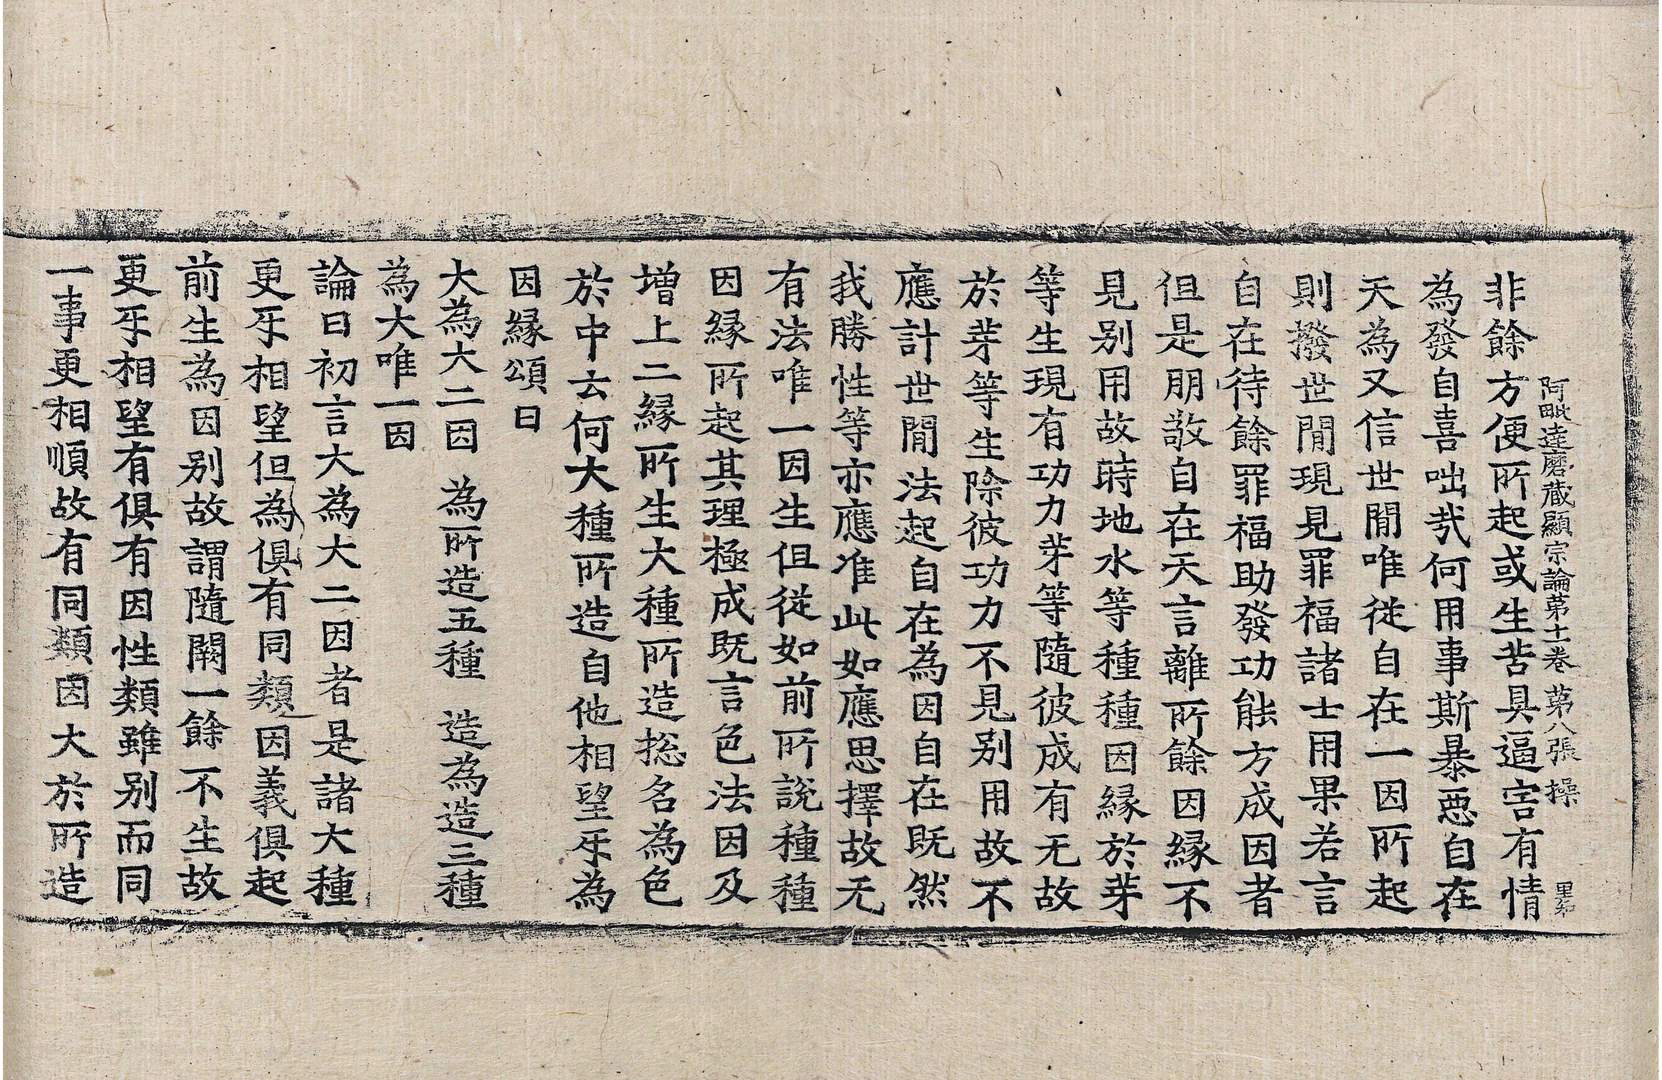 阿毗達磨藏顯宗論苐十一卷 苐八張 操
非餘方便所起或生苦具逼害有情
為發自喜咄㢤何用事斯暴惡自在
天為又信世閒唯從自在一因所起
則撥世閒現見罪福諸士用果若言
自在待餘罪福助發功能方成因者
但是朋敬自在天言離所餘因緣不
見別用故時地水等種種因緣於芽
等生現有功力芽等隨彼成有无故
於芽等生除彼功力不見別用故不
應計世閒法起自在為因自在既然
我勝性等亦應准此如應思擇故无
有法唯一因生但從如前所說種種
因緣所起其理極成既言色法因及
增上二緣所生大種所造捴名為色
於中云何大種所造自他相望㸦為
因緣頌曰
大為大二因　為所造五種　造為造三種
為大唯一因
論曰初言大為大二因者是諸大種
更㸦相望但為俱有同類因義俱起
前生為因別故謂隨闕一餘不生故
更㸦相望有俱有因性類雖別而同
一事更相順故有同類因大於所造